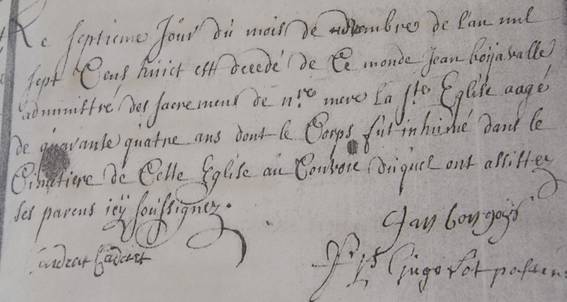 Le septieme Jour du mois de novembre de l'an mil
sept Cens huict est decedé de Ce monde Jean boijavalle
administré des sacremens de n.re mere la s.te Eglise aagé
de quarante quatre ans dont le Corps fut inhumé dans le
Cimetiere de Cette Eglise au Convoie duquel ont assistez
ses parens icÿ soussignez.